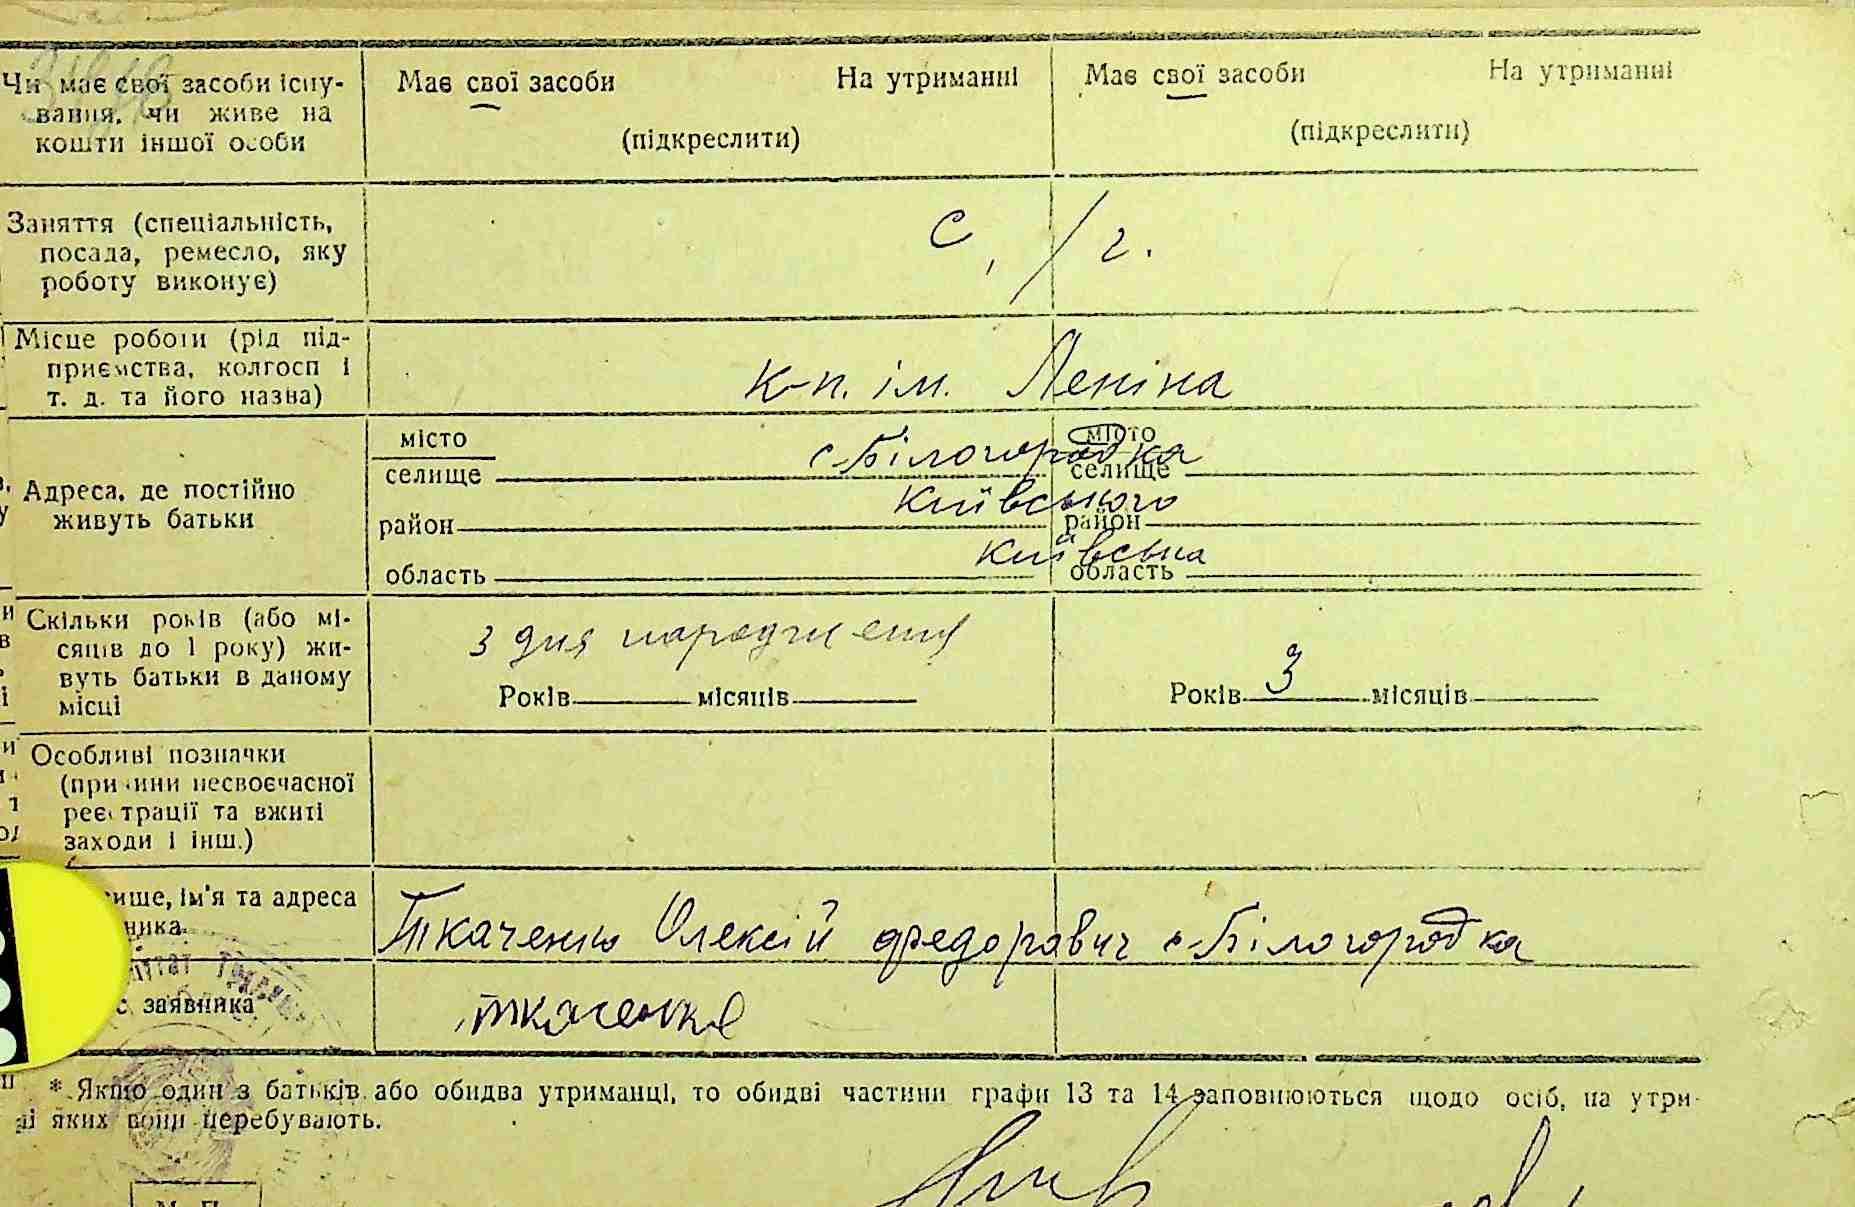 Чи має свої засоби існу-
вання, чи живе на
кошти іншої особи
Має свої засоби На утриманні
(підкреслити)
Має свої засоби На утриманні
(підкреслити)
Заняття (спеціальність,
посада, ремесло, яку
роботу виконує)
с/г.
Місце роботи (рід під-
приємства, колгосп і
т. д. та його назва)
к-п. ім. Леніна
Адреса, де постійно
живуть батьки
місто
селище
район
область
с. Білогородка
Київського
Київська
місто
селище
район
область
Скільки років (або мі-
сяців до 1 року) жи-
вуть батьки в даному
місці
з дня народження
Років місяців
Років 3 місяців
Особливі позначки
(причини несвоєчасної
реєстрації та вжиті
заходи і інш.)
ім'я та адреса
Ткаченко Олексій Федорович с. Білогородка
заявника
Ткаченко
* Якщо один з батьків або обидва утриманці, то обидві частини графи 13 та 14 заповнюються щодо осіб, на утри-
яких вони перебувають.
М. П.